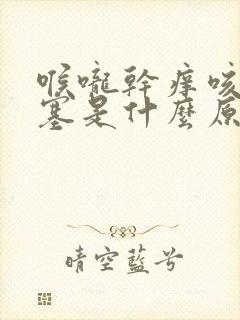 喉嚨幹痒咳
塞是什麼原
晴空藍兮